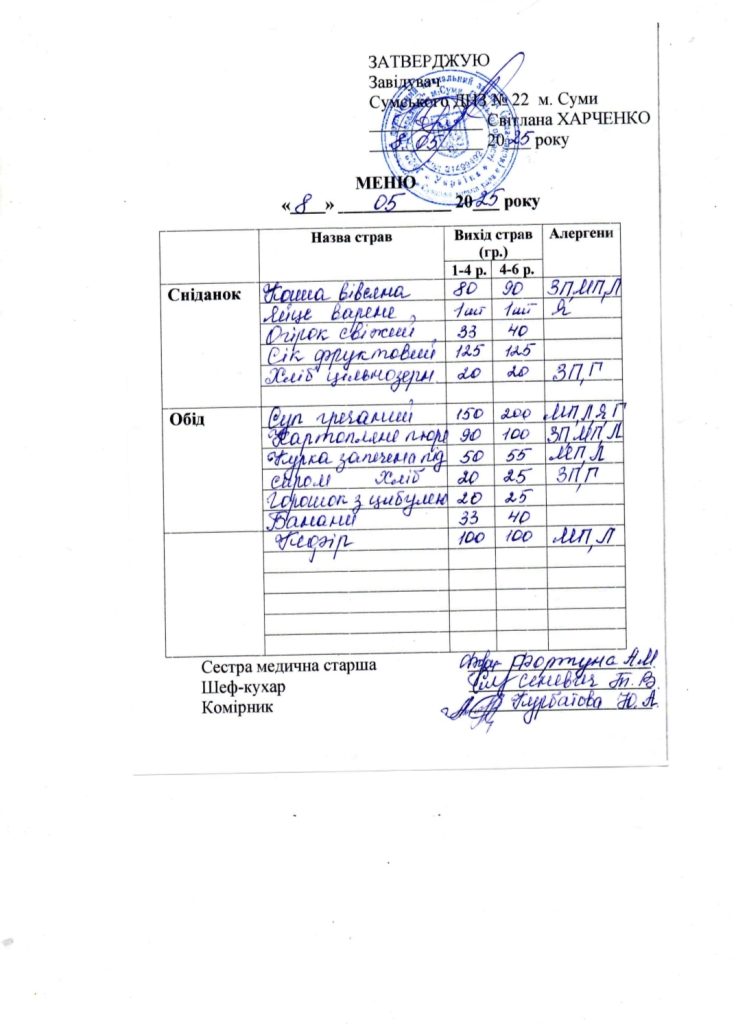 ЗАТВЕРДЖУЮ
Завідувач
Сумського ДНЗ № 22 м. Суми
Світлана ХАРЧЕНКО
8. 05 2025 року
МЕНЮ
«8» 05 2025 року
Назва страв Вихід страв (гр.) Алергени
1-4 р. 4-6 р.
Сніданок Каша вівсяна 80 90 ЗП,МП,Л
Яйце варене 1шт 1шт Я
Огірок свіжий 33 40
Сік фруктовий 125 125
Хліб цільнозерн 20 20 ЗП,Г
Обід Суп гречаний 150 200 МП,Л,Я,Г
Картопляне пюре 90 100 ЗП,МП,Л
Курка запечена під 50 55 МП,Л
сиром Хліб 20 25 ЗП,Г
Горошок з цибулею 20 25
Банани 33 40
Кефір 100 100 МП,Л
Сестра медична старша Фортуна А.М.
Шеф-кухар Сеневич Т. В.
Комірник Курбатова Ю. А.